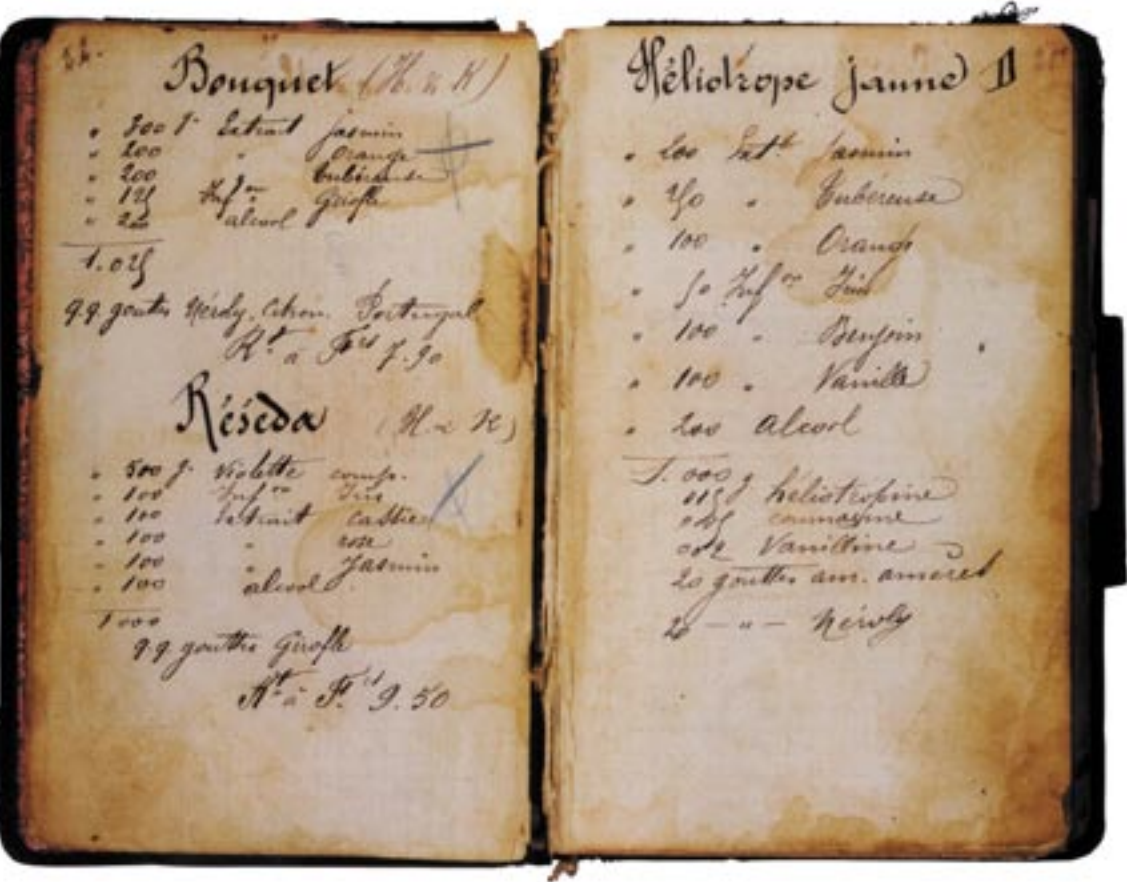 Bouquet (H. & K)
" 300 gr Extrait Jasmin
" 200 " Orange
" 200 " Tubéreuse
" 125 Infon Girofle
" 200 alcool
1.025
q.q. gouttes Néroly. Citron. Portugal
Rt à Frs 7.90
Réséda (H & K)
" 500 gr Violette comp.
" 100 Infon Iris
" 100 Extrait cassie
" 100 " rose
" 100 " Jasmin
" 100 alcool
1000
q.q. gouttes Girofle
Rt à Frs 9.50
Héliotrope jaune II
" 200 Extt Jasmin
" 250 " Tubéreuse
" 100 " Orange
" 50 Infon Iris
" 100 " Benjoin
" 100 " Vanille
" 200 alcool
1.000 g
héliotropine
coumarine
Vanilline
20 gouttes am. amères
20 — " — Néroly